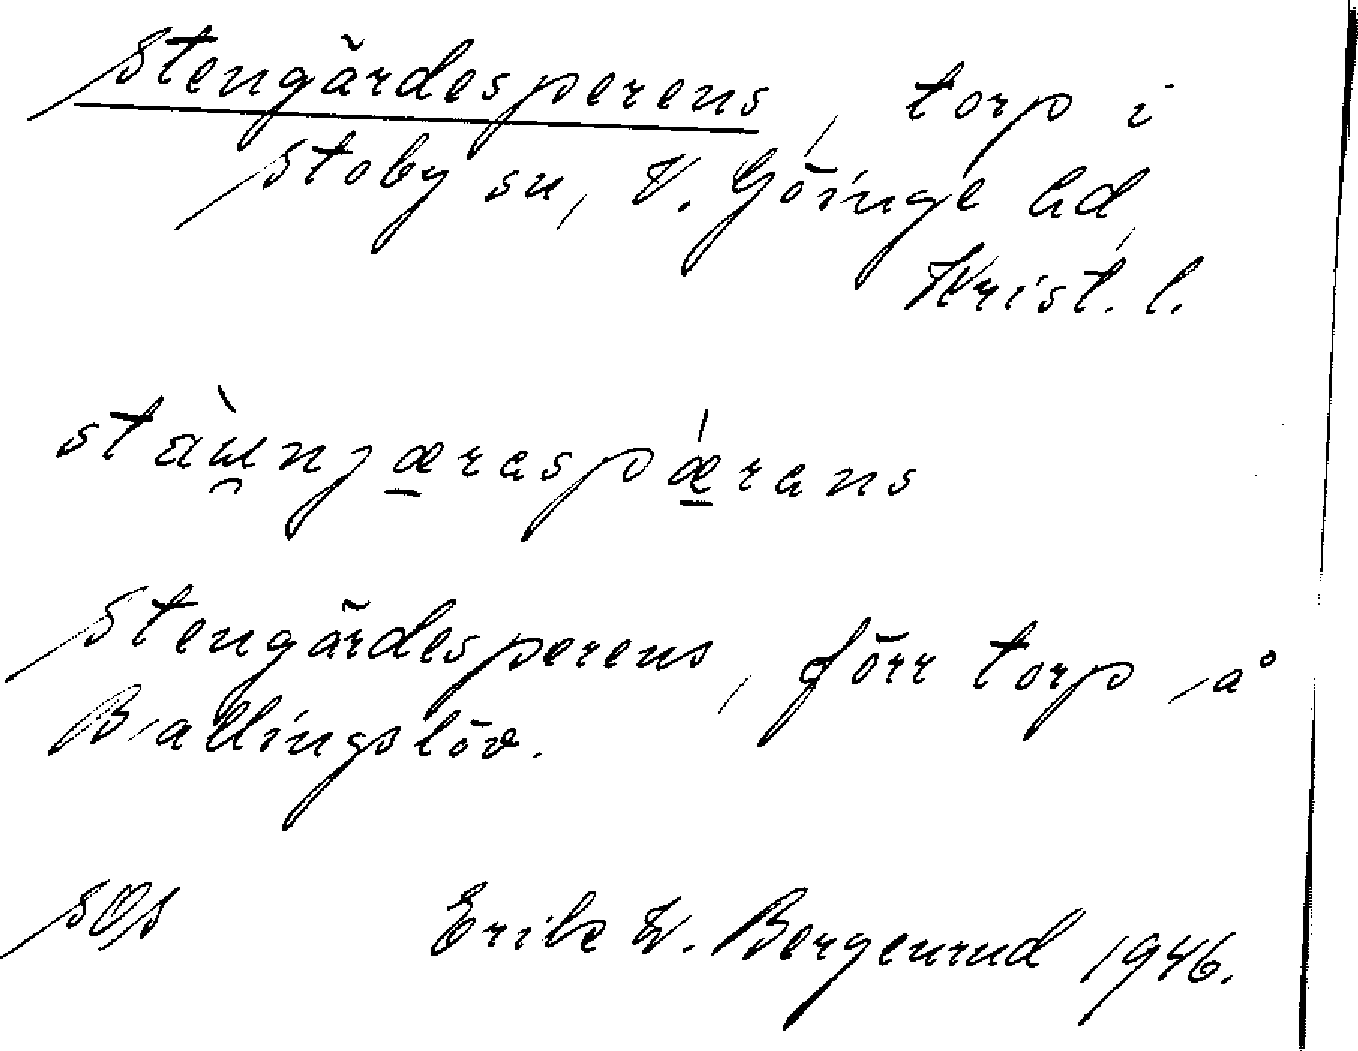 Stengärdesperens, torp i
Stoby sn, V. Göinge hd,
Krist. l.
Stengärdesperens, förr torp å
Ballingslöv.
SOS Erik W. Bergenrud 1946.